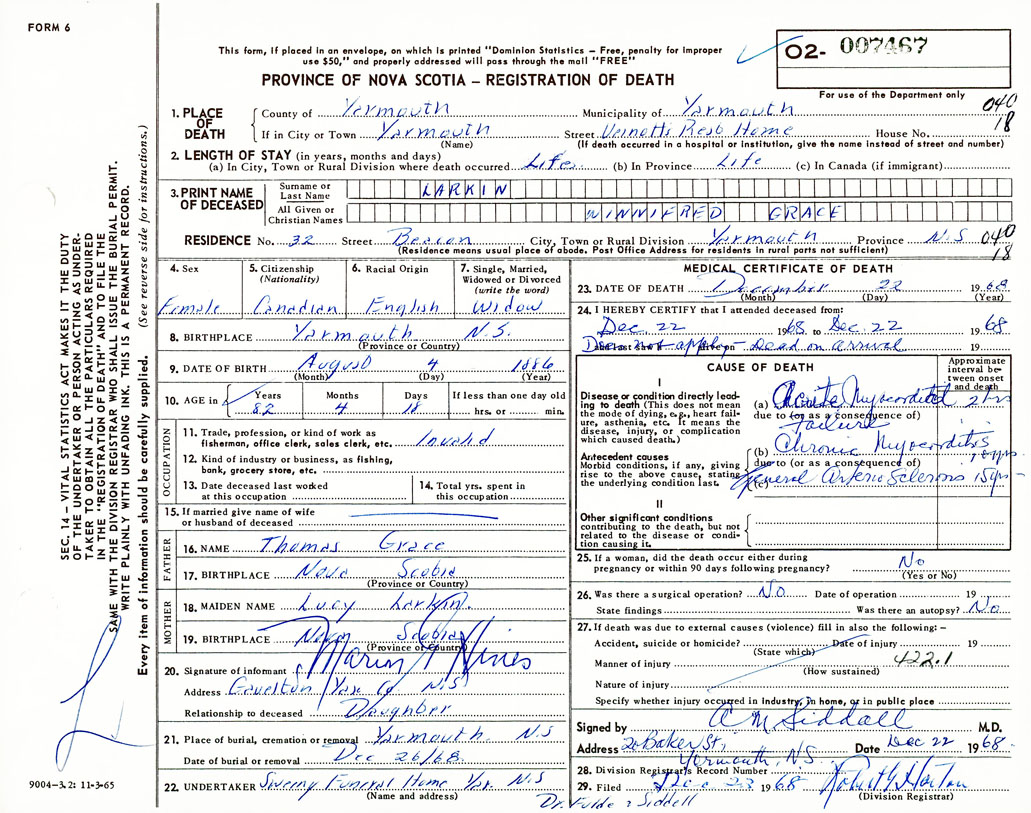 FORM 6
This form, if placed in an envelope, on which is printed "Dominion Statistics – Free, penalty for improper
use $50," and properly addressed will pass through the mail "FREE"
PROVINCE OF NOVA SCOTIA – REGISTRATION OF DEATH
O2- 007467
For use of the Department only
040
18
1. PLACE OF DEATH
County of Yarmouth Municipality of Yarmouth
If in City or Town Yarmouth Street Veinotts Rest Home House No.
(Name) (If death occurred in a hospital or institution, give the name instead of street and number)
2. LENGTH OF STAY (in years, months and days)
(a) In City, Town or Rural Division where death occurred Life (b) In Province Life (c) In Canada (if immigrant)
3. PRINT NAME OF DECEASED
Surname or Last Name LARKIN
All Given or Christian Names WINNIFRED GRACE
RESIDENCE No. 32 Street Beacon City, Town or Rural Division Yarmouth Province N.S 040
(Residence means usual place of abode. Post Office Address for residents in rural parts not sufficient) 18
4. Sex Female
5. Citizenship (Nationality) Canadian
6. Racial Origin English
7. Single, Married, Widowed or Divorced (write the word) Widow
8. BIRTHPLACE Yarmouth N.S.
(Province or Country)
9. DATE OF BIRTH August 4 1886
(Month) (Day) (Year)
10. AGE in Years 82 Months 4 Days 18 If less than one day old hrs. or min.
OCCUPATION
11. Trade, profession, or kind of work as
fisherman, office clerk, sales clerk, etc. Invalid
12. Kind of industry or business, as fishing,
bank, grocery store, etc.
13. Date deceased last worked
at this occupation
14. Total yrs. spent in
this occupation
15. If married give name of wife
or husband of deceased
FATHER
16. NAME Thomas Grace
17. BIRTHPLACE Nova Scotia
(Province or Country)
MOTHER
18. MAIDEN NAME Lucy Larkin
19. BIRTHPLACE Nova Scotia
(Province or Country)
20. Signature of informant Marion Hines
Address Yar Co N.S
Relationship to deceased Daughter
21. Place of burial, cremation or removal Yarmouth N.S
Date of burial or removal Dec 26/68.
22. UNDERTAKER Sweeny Funeral Home Yar. N.S
(Name and address)
MEDICAL CERTIFICATE OF DEATH
23. DATE OF DEATH December 22 1968
(Month) (Day) (Year)
24. I HEREBY CERTIFY that I attended deceased from:
Dec. 22 1968 to Dec. 22 1968
Does not apply - Dead on arrival 19
CAUSE OF DEATH
Approximate interval between onset and death
I
Disease or condition directly leading to death (This does not
mean the mode of dying, e.g., heart failure, asthenia, etc. It means the
disease, injury, or complication
which caused death.)
(a) Acute Myocorditel 2 hrs
due to (or as a consequence of)
Failure
Antecedent causes
Morbid conditions, if any, giving
rise to the above cause, stating
the underlying condition last.
(b) Chronic Myocorditis
due to (or as a consequence of)
(c) General Arterio Sclerosis 15 yrs
II
Other significant conditions
contributing to the death, but not
related to the disease or condition causing it.
25. If a woman, did the death occur either during
pregnancy or within 90 days following pregnancy? No
(Yes or No)
26. Was there a surgical operation? NO Date of operation 19
State findings Was there an autopsy? No
27. If death was due to external causes (violence) fill in also the following: –
Accident, suicide or homicide? Date of injury 19
(State which)
Manner of injury 422.1
(How sustained)
Nature of injury
Specify whether injury occurred in Industry, in home, or in public place
Signed by A M Siddall M.D.
Address 20 Baker St, Yarmouth, N.S. Date Dec 22 1968.
28. Division Registrar's Record Number
29. Filed Dec 23 1968 Robert Horton
(Division Registrar)
Dr. Fulde & Siddall
9004–3.2: 11-3-65
SEC. 14 – VITAL STATISTICS ACT MAKES IT THE DUTY
OF THE UNDERTAKER OR PERSON ACTING AS UNDER-
TAKER TO OBTAIN ALL THE PARTICULARS REQUIRED
IN THE "REGISTRATION OF DEATH" AND TO FILE THE
SAME WITH THE DIVISION REGISTRAR WHO SHALL ISSUE THE BURIAL PERMIT.
WRITE PLAINLY WITH UNFADING INK. THIS IS A PERMANENT RECORD.
Every item of information should be carefully supplied. (See reverse side for instructions.)